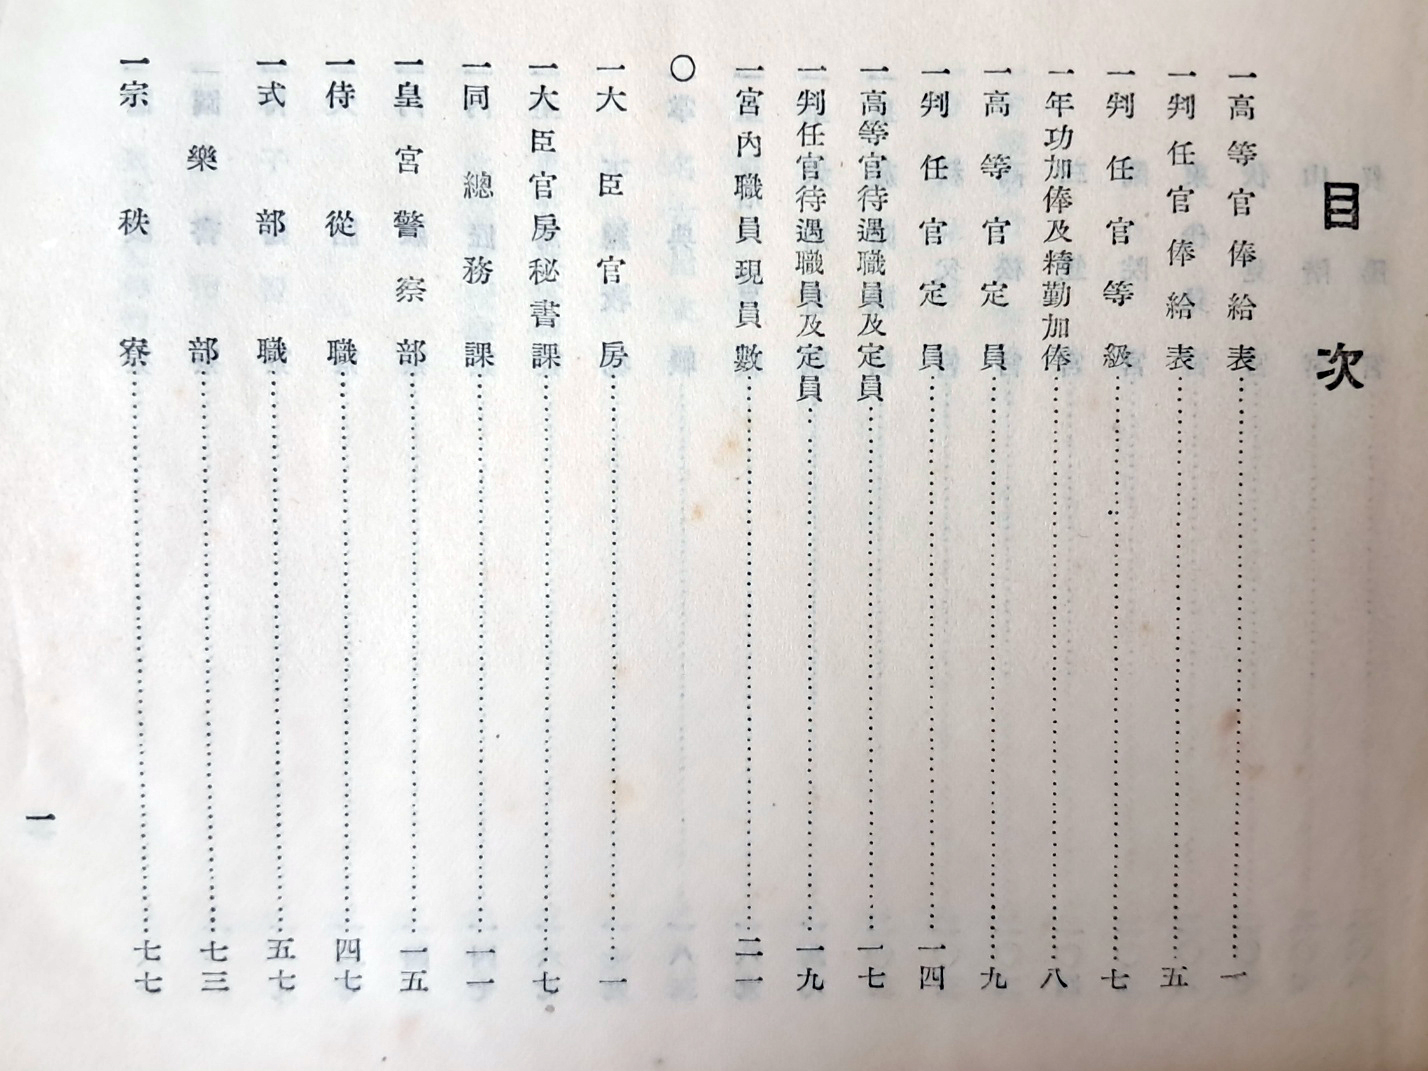 目次
一高等官俸給表……一
一判任官俸給表……五
一判任官等級……七
一年功加俸及精勤加俸……八
一高等官定員……九
一判任官定員……一四
一高等官待遇職員及定員……一七
一判任官待遇職員及定員……一九
一宮內職員現員數……二一
〇
一大臣官房……一
一大臣官房秘書課……七
一同總務課……一一
一皇宮警察部……一五
一侍從職……四七
一式部職……五七
樂部……七三
一宗秩寮……七七
一